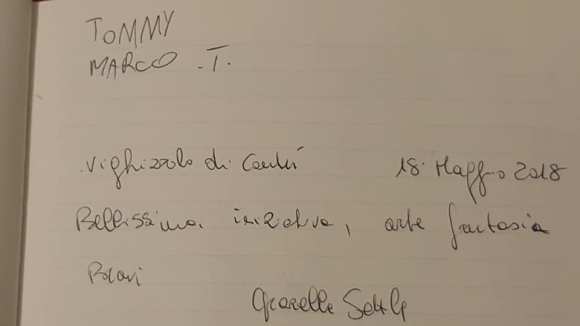 TOMMY
MARCO .T.
Vighizzolo di Cantù 18 Maggio 2018
Bellissima iniziativa, arte fantasia
Bravi